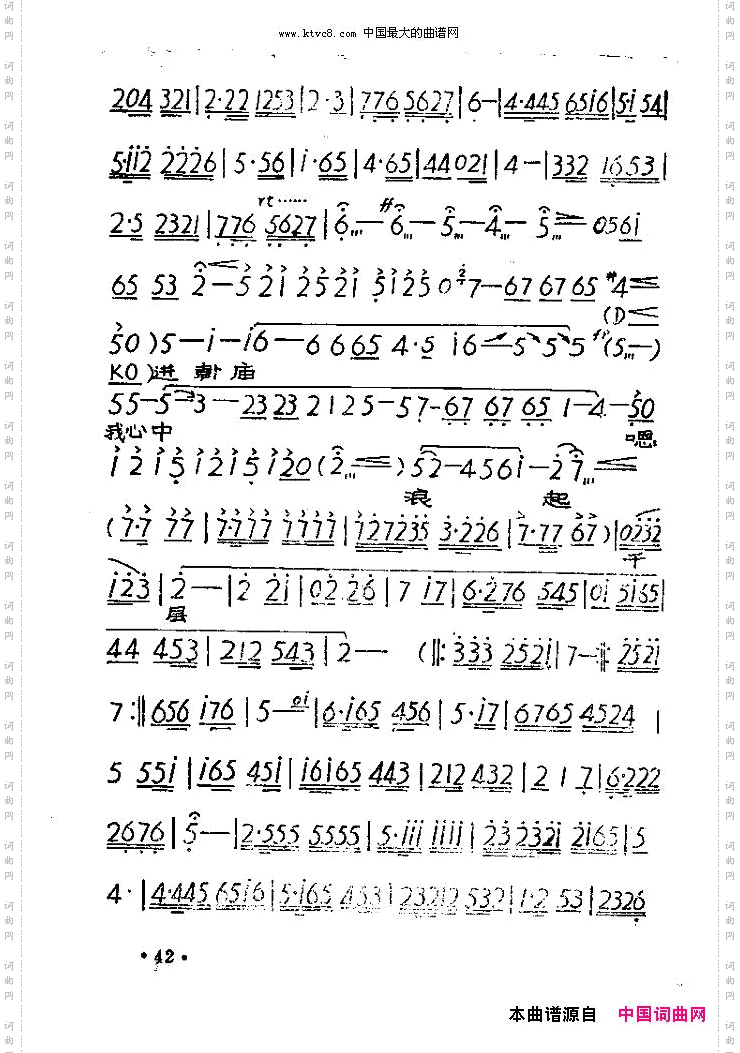 www.ktvc8.com 中国最大的曲谱网
204 321|2·22 1253|2·3|776 5627|6—|4·445 65i6|5·i 54|
5·ii2 2226|5·56|i·65|4·65|44 021|4—|332 1653|
rt······ ff
2·5 2321|776 5627|6—6—5—4—5 056i
65 53 2—52i 252i 5i25 0 7—67 67 65 #4
(D
50)5—i—i6—6 6 65 4·5 i6—5 5 5 (5—)
KO)进 朝 庙
55—5 3—23 23 2 1 2 5—57—67 67 65 1—4—50
我心中 嗯
i 2 i 5 i 2 i 5 i 20(2—)52—456i—2 7
浪 起
(7·7 77|7·777 7777|727235 3·226|7·77 67)|0232
千
i23|2——|2 2i|02 26|7 i7|6·276 545|0i 5i65|
层
44 453|212 543|2—— (‖:333 252i|7—:‖252i
7:‖656 i76|5—0i|6·i65 456|5·i7|6765 4524|
5 55i|i65 45i|i6i65 443|212 432|2 1 7|6·222
2676|5——|2·555 5555|5·iii iiii|23 232i 2i65|5
4·|4·445 65i6|5·i65 453|23212 532|1·2 53|2326
·42·
本曲谱源自 中国词曲网